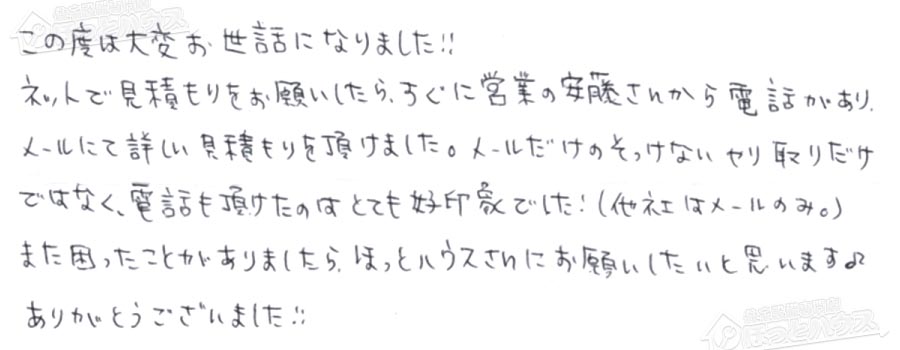 この度は大変お世話になりました!!
ネットで見積もりをお願いしたら、すぐに営業の安藤さんから電話があり、
メールにて詳しい見積もりを頂けました。メールだけのそっけないやり取りだけ
ではなく、電話も頂けたのはとても好印象でした!(他社はメールのみ。)
また困ったことがありましたら、ほっとハウスさんにお願いしたいと思います♫
ありがとうございました!!
ほっとハウス